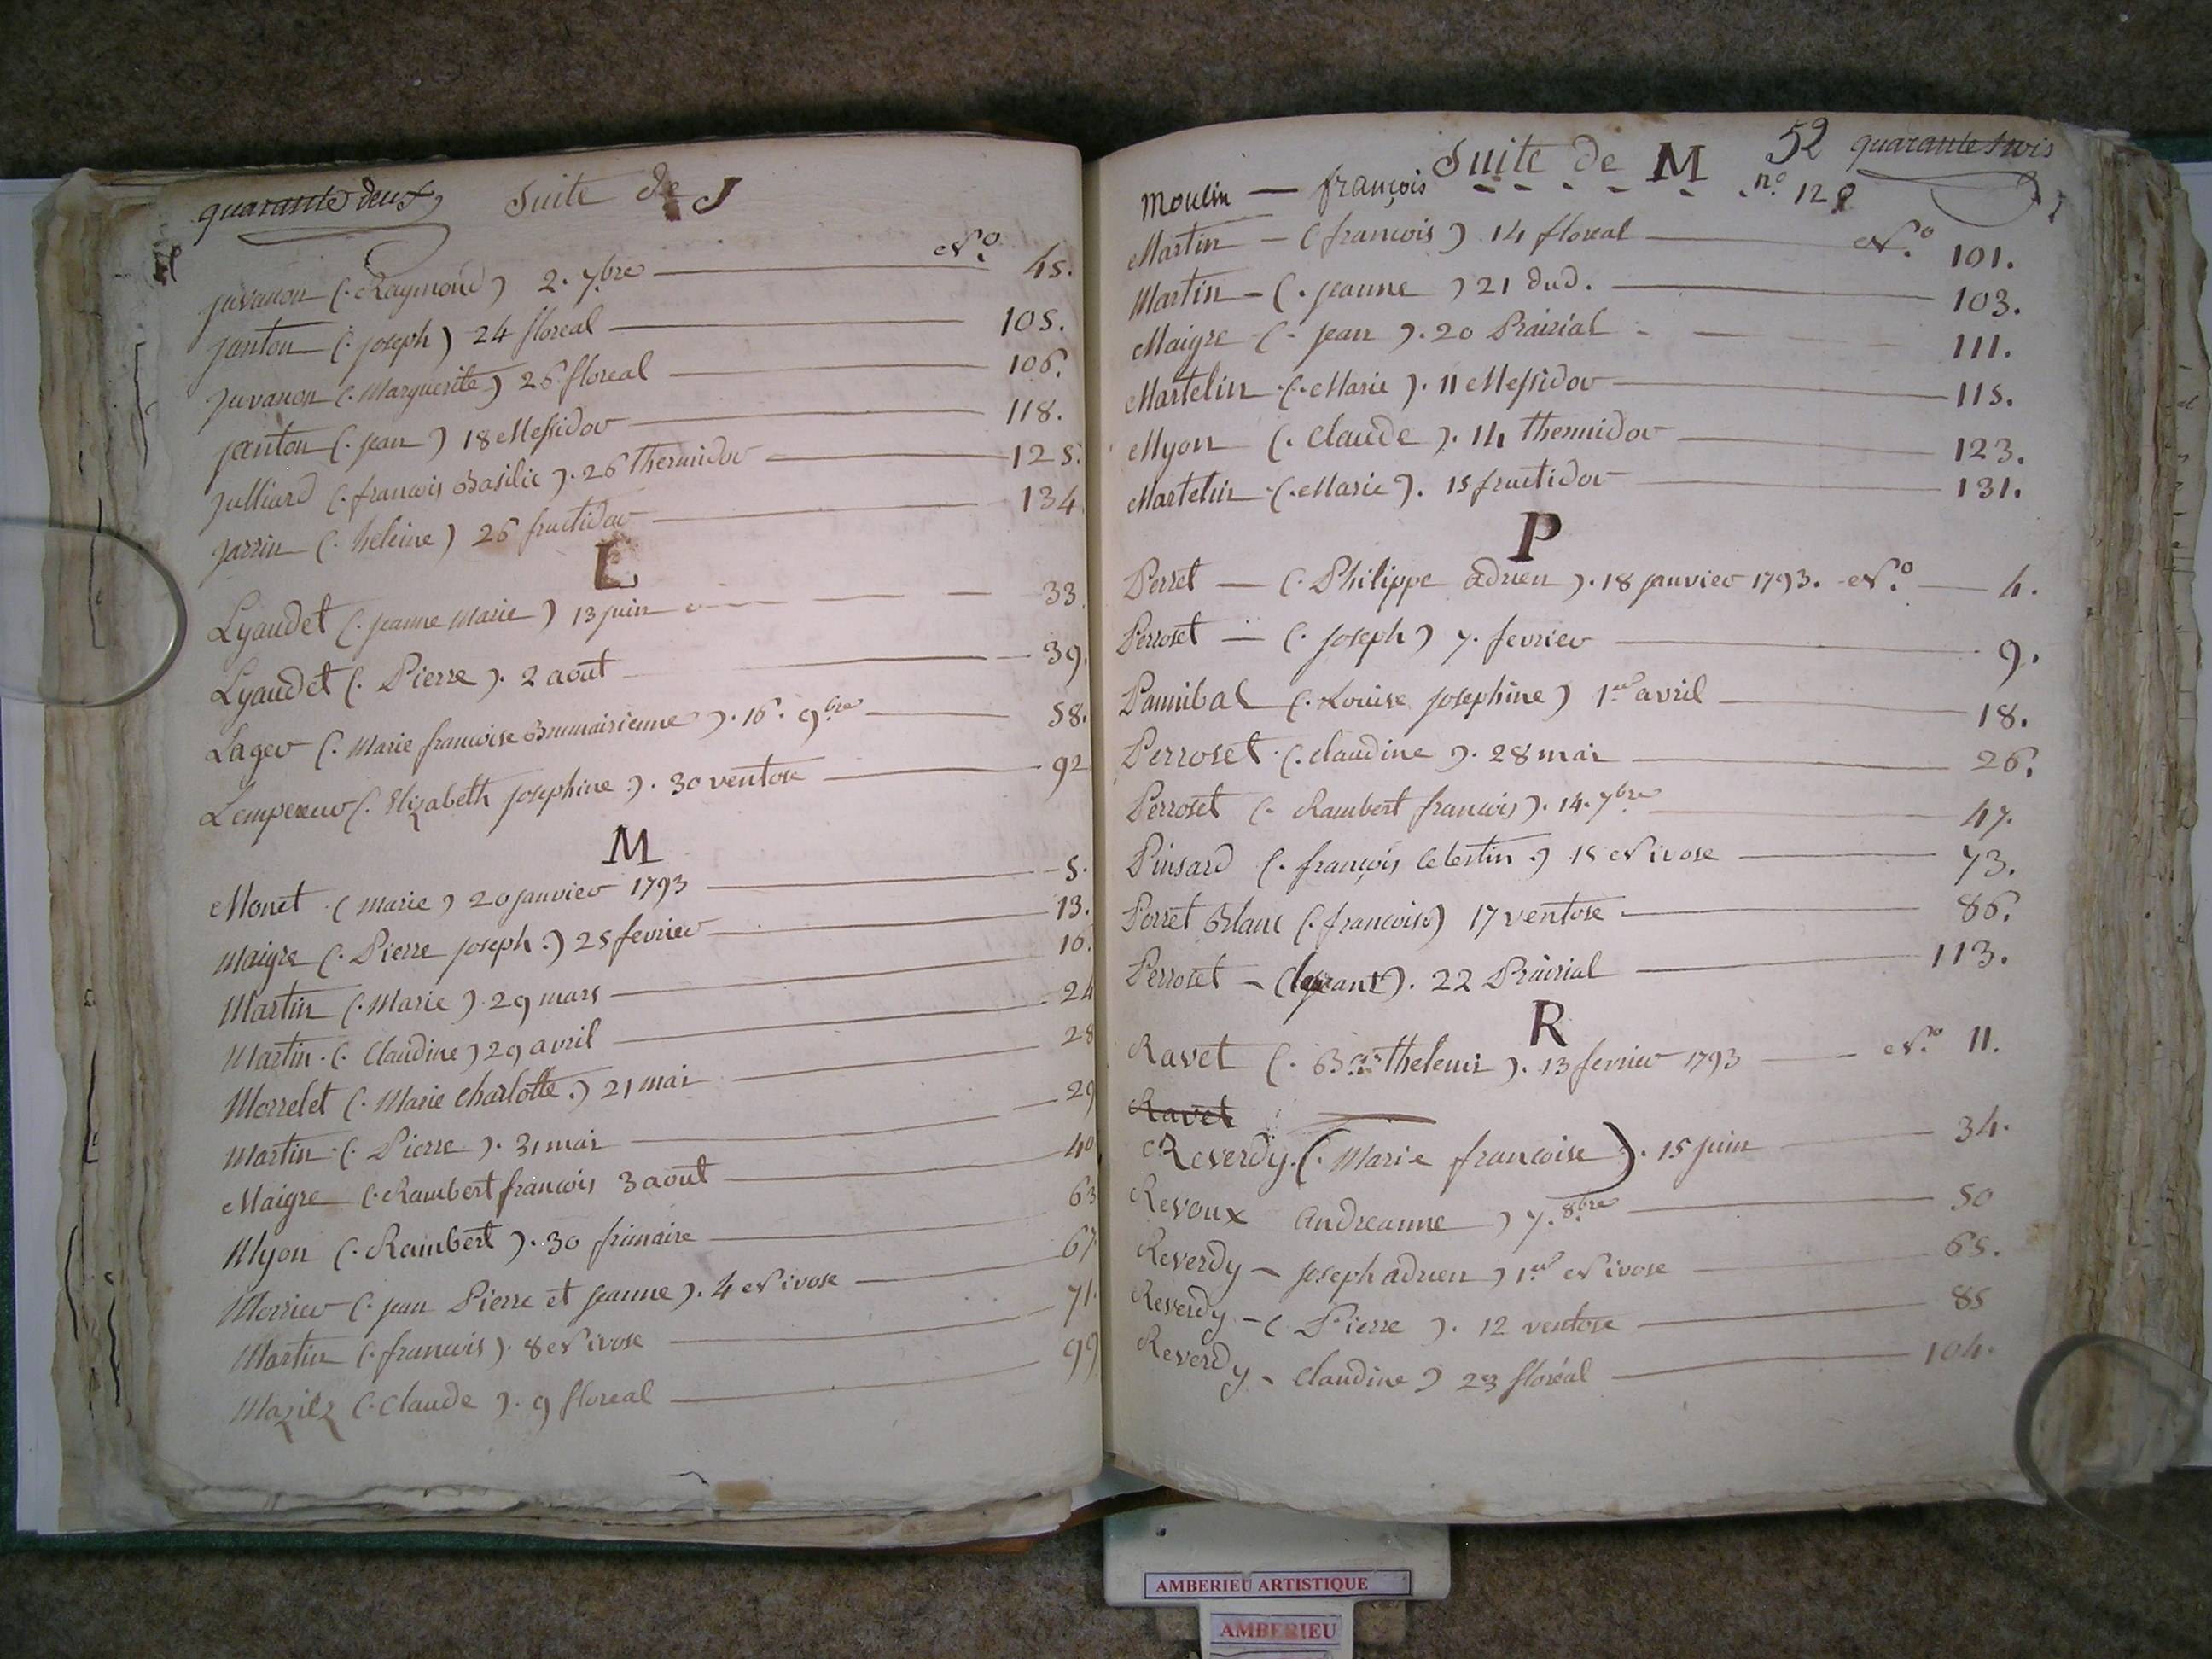 quarante deux Suite de J
Juvanon (. Raymond) 2. 7bre N.o 45.
Janton (. joseph) 24 floreal 105.
Juvanon (. Marguerite) 26 floreal 106.
Janton (. jean) 18 Messidor 118.
Julliard (. francois Basilic ). 26 thermidor 125.
Jarrin (. heleine) 26 fructidor 134
L
Lyaudet (. jeanne Marie) 13 juin 33.
Lyaudet (. Pierre ). 2 aout 39.
Lager (. Marie francoise Brumairienne ). 16. 9bre 58.
Lempereur (. Elizabeth josephine ). 30 ventose 92
M
Monet (marie) 20 janvier 1793 5.
Maigre (. Pierre joseph .) 25 fevrier 13.
Martin (. Marie) 29 mars 16.
Martin . (. Claudine) 29 avril 24
Morrelet (. Marie Charlotte .) 21 mai 28
Martin . (. Pierre ). 31 mai 29
Maigre (. Rambert francois 3 aout 40
Myon (. Rambert ). 30 frimaire 63
Morrier (. jean Pierre et jeanne ). 4 Nivose 67
Martin (. francois ). 8 Nivose 71.
Mazilz (. Claude ). 9 floreal 99
52 quarante trois
Suite de M
Moulin — françois n.o 128
Martin — (francois) 14 floreal N.o 101.
Martin — (. jeanne ) 21 dud. 103.
Maigre (. jean ). 20 Prairial 111.
Martelin (. Marie ). 11 Messidor 115.
Myon (. Claude ). 14 thermidor 123.
Martelin (. Marie ). 15 fructidor 131.
P
Perret — (. Philippe adrien ). 18 janvier 1793. N.o 4.
Perroset — (. joseph) 7. fevrier 9.
Pannibal (. Louise josephine) 1er avril 18.
Perroset . (. claudine ). 28 mai 26.
Perroset (. Rambert francois ). 14. 7bre 47.
Pinsard (. françois Celestin .) 15 Nivose 73.
Perret Blanc (. francoise) 17 ventose 86.
Perroset — ). 22 Prairial 113.
R
Ravet (. Barthelemi ). 13 fevrier 1793 N.o 11.
Ravet
Reverdy. (. Marie francoise ). 15 juin 34.
Revoux Andreanne ) 7. 8bre 50
Reverdy — joseph adrien ) 1er Nivose 65.
Reverdy — ( Pierre ). 12 ventose 85
Reverdy — Claudine ) 23 floréal 104.
AMBERIEU ARTISTIQUE
AMBERIEU